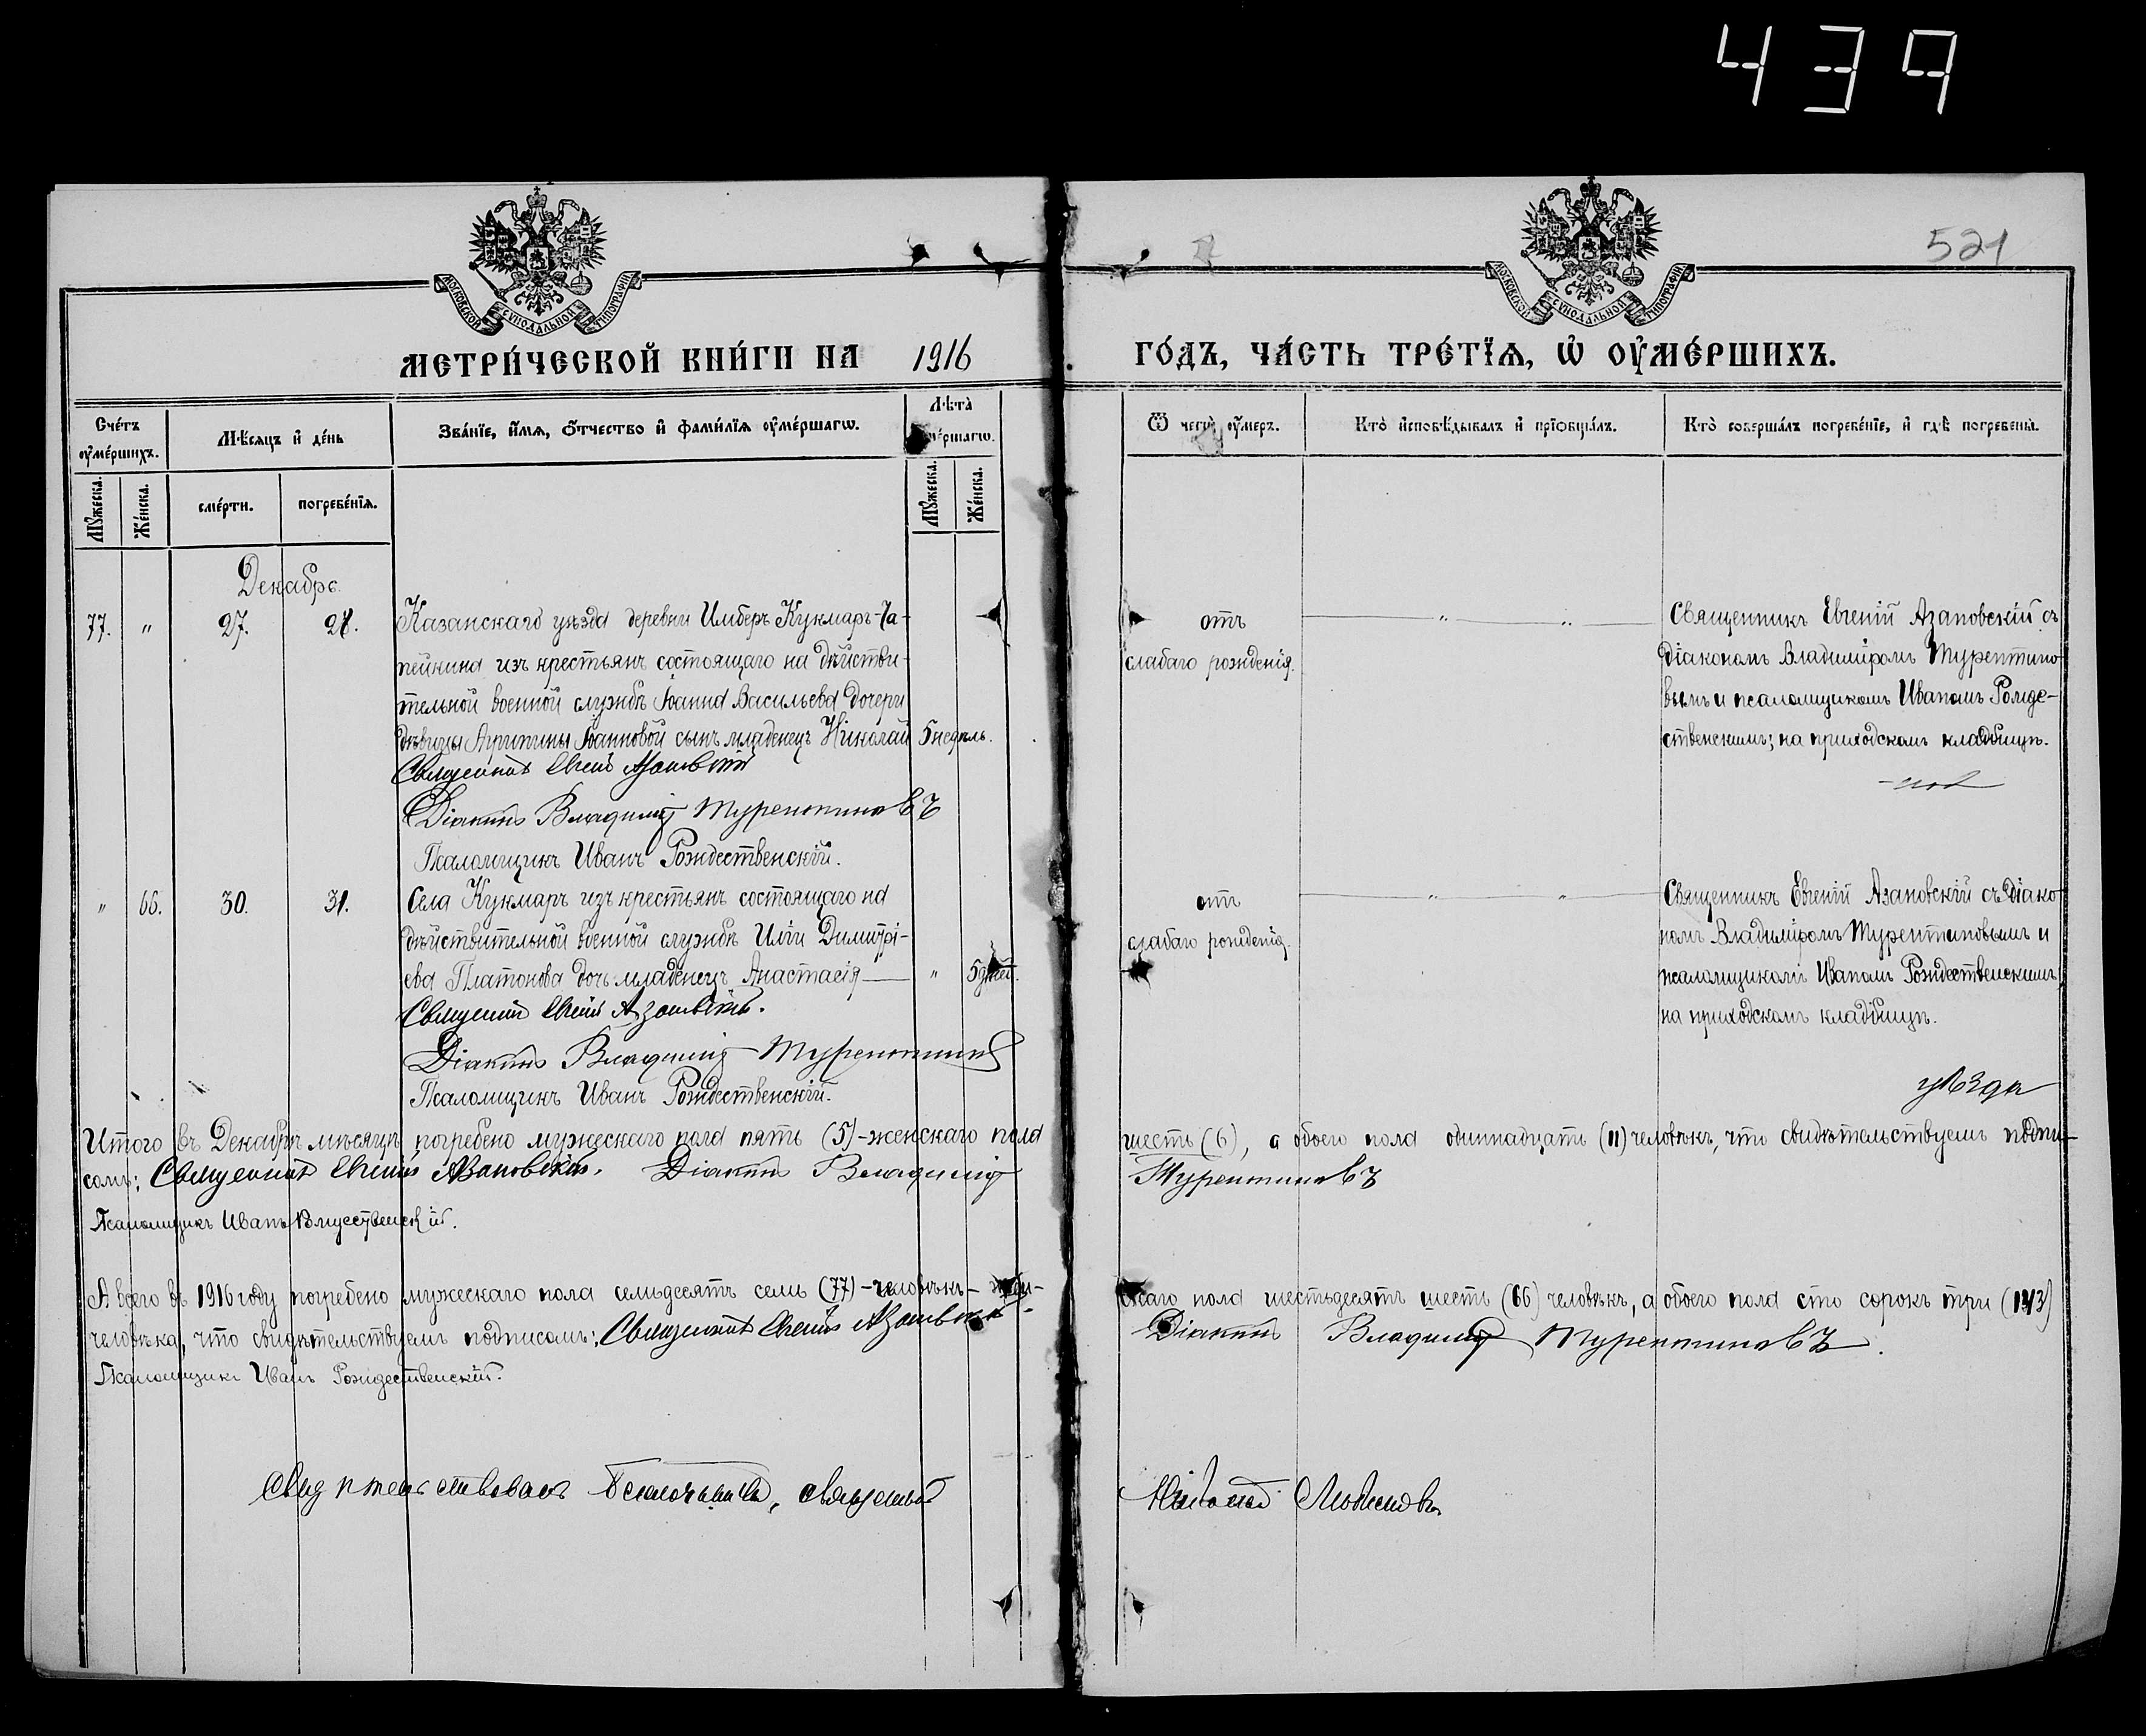 439
521
МОСКОВСКОЙ СѴНОДАЛЬНОЙ ТИПОГРАФІИ
МОСКОВСКОЙ СѴНОДАЛЬНОЙ ТИПОГРАФІИ
МЕТРИ́ЧЕСКОЙ КНИ́ГИ НА 1916 ГО́ДЪ, ЧА́СТЬ ТРЕ́ТЇѦ, Ѡ҆ ОУ҆МЕ́РШИХЪ.
Сче́тъ оу҆ме́ршихъ.
Мѣ́сяцъ и҆ де́нь
Зва́нїе, и҆́мя, ѻ҆́тчество и҆ фами́лїя оу҆ме́ршагѡ.
Лѣ́та оу҆ме́ршагѡ.
Ѿ чегѡ̀ оу҆́меръ.
Кто̀ и҆сповѣ́дывалъ и҆ прїѡбща́лъ.
Кто̀ соверша́лъ погребе́нїе, и҆ гдѣ̀ погребены̀.
Мꙋ́жеска.
Же́нска.
сме́рти.
погребе́нїя.
Мꙋ́жеска.
Же́нска.
Декабрь.
77. " 27. 28.
Казанскаго уѣзда деревни Имберъ Кукмаръ-Ча-
пейкина изъ крестьянъ состоящаго на дѣйстви-
тельной военной службѣ Іоанна Васильева дочери
дѣвицы Агрипины Іоанновой сынъ младенецъ Николай 5 недѣль.
Священникъ Евгеній Азановскій
Діаконъ Владиміръ Турептиновъ
Псаломщикъ Иванъ Рождественскій.
отъ
слабаго рожденія.
" "
Священникъ Евгеній Азановскій съ
діакономъ Владиміромъ Турептино-
вымъ и псаломщикомъ Иваномъ Рожде-
ственскимъ; на приходскомъ кладбищѣ.
" 66. 30. 31.
Села Кукмаръ изъ крестьянъ состоящаго на
дѣйствительной военной службѣ Иліи Димитрі-
ева Платонова дочь младенецъ Анастасія — " 5 дней.
Священникъ Евгеній Азановскій.
Діаконъ Владиміръ Турептиновъ
Псаломщикъ Иванъ Рождественскій.
отъ
слабаго рожденія.
" "
Священникъ Евгеній Азановскій съ діако-
номъ Владиміромъ Турептиновымъ и
псаломщикомъ Иваномъ Рождественскимъ,
на приходскомъ кладбищѣ.
уѣзда
Итого въ Декабрѣ мѣсяцѣ погребено мужескаго пола пять (5)-женскаго пола шесть (6), а обоего пола одиннадцать (11) человѣкъ, что свидѣтельствуемъ подпи-
сомъ: Священникъ Евгеній Азановскій. Діаконъ Владиміръ Турептиновъ
Псаломщикъ Иванъ Рождественскій.
А всего въ 1916 году погребено мужескаго пола семьдесятъ семь (77)-человѣкъ-жен-скаго пола шестьдесятъ шесть (66) человѣкъ, а обоего пола сто сорокъ три (143)
человѣка, что свидѣтельствуемъ подписомъ: Священникъ Евгеній Азановскій- Діаконъ Владиміръ Турептиновъ.
Псаломщикъ Иванъ Рождественскій.
Свидѣтельствовалъ священникъ